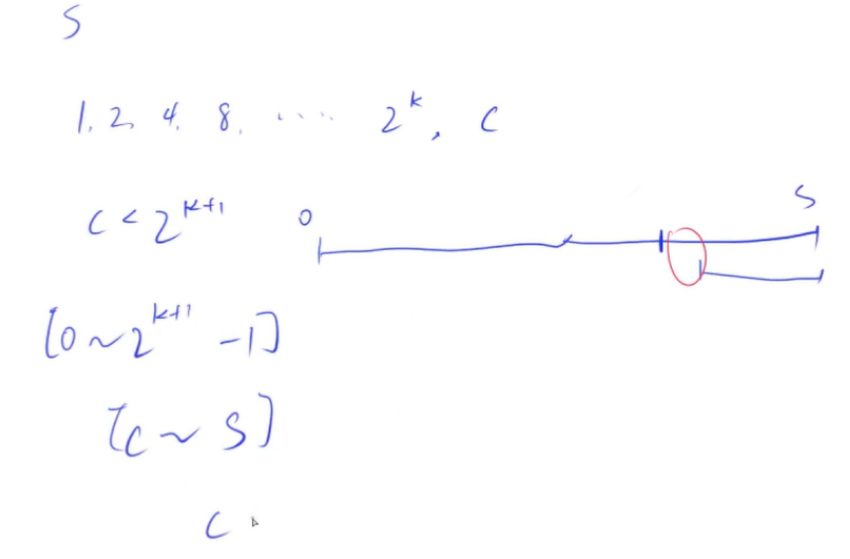 S
1, 2, 4, 8, ..... 2^k, C
C < 2^{k+1}
0
S
[0 ~ 2^{k+1} - 1]
[C ~ S]
C